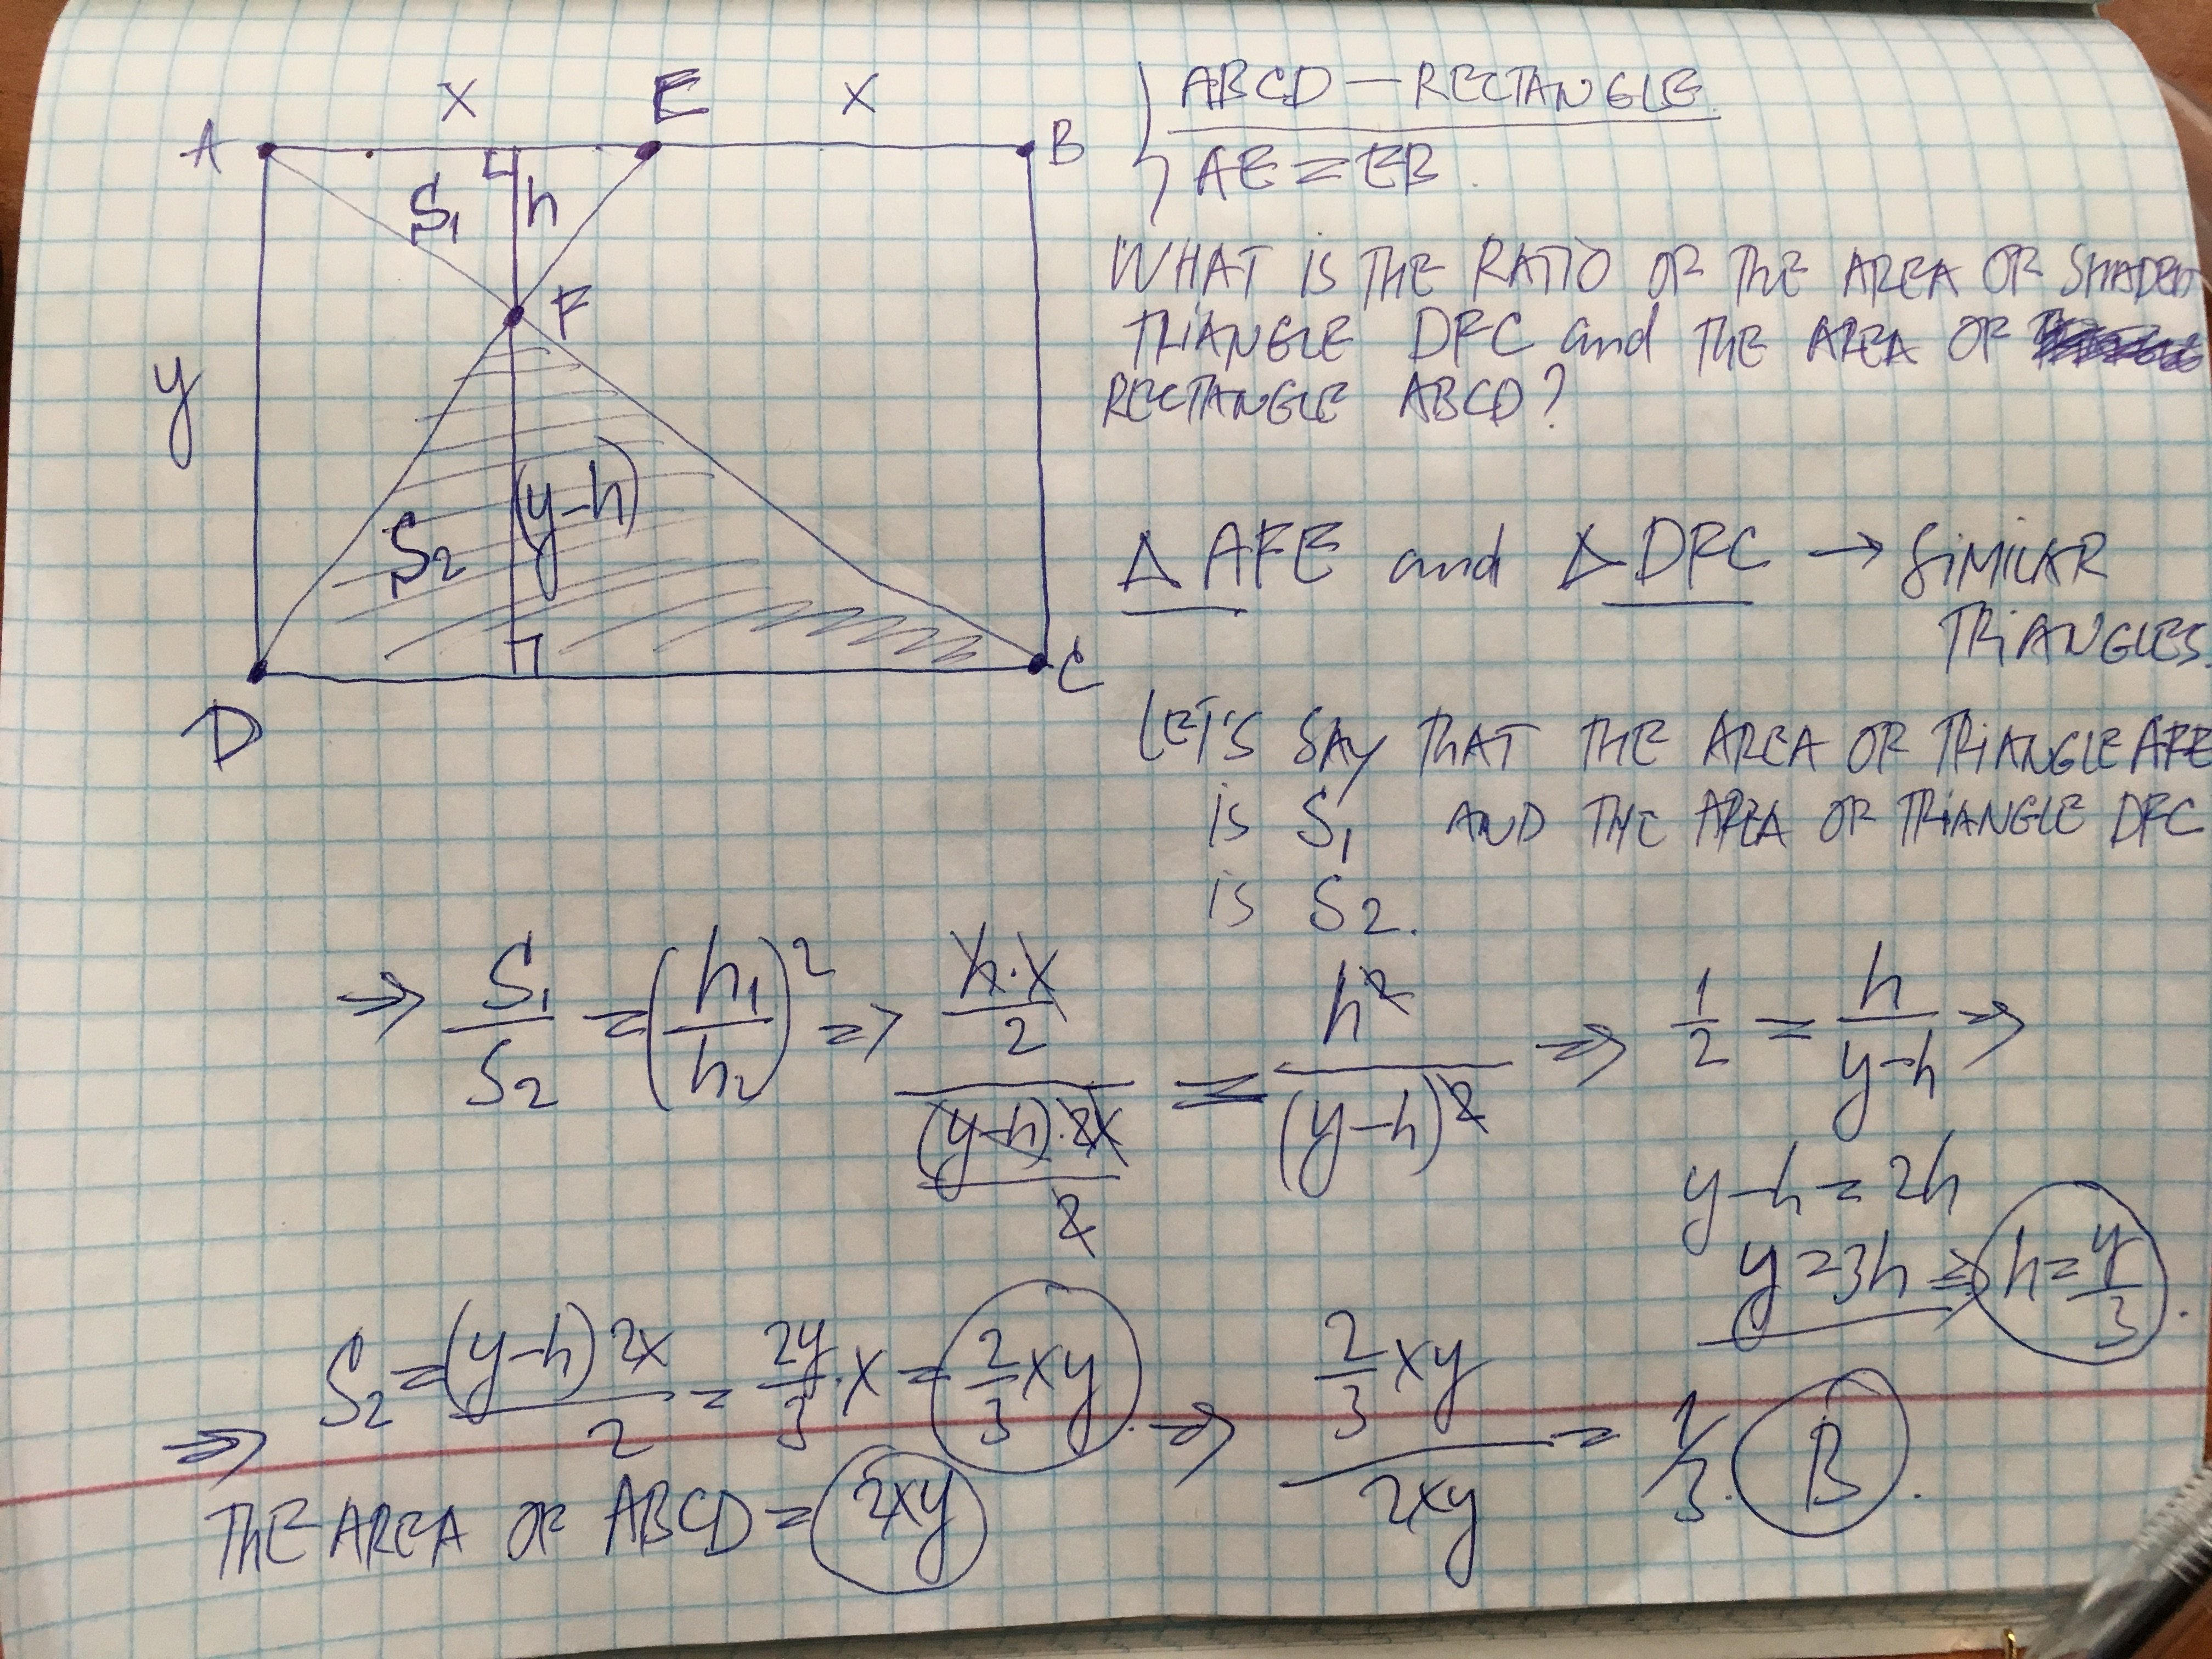 x E x
A B
S₁ h
F
y
(y-h)
S₂
D C
ABCD — RECTANGLE.
AE = EB.
WHAT IS THE RATIO OF THE AREA OF SHADED
TRIANGLE DFC and THE AREA OF
RECTANGLE ABCD?
Δ AFE and Δ DFC → SIMILAR
TRIANGLES.
LET'S SAY THAT THE AREA OF TRIANGLE AFE
is S₁ AND THE AREA OF TRIANGLE DFC
is S₂.
⇒ S₁/S₂ = (h₁/h₂)² ⇒ (h·x/2)/((y-h)·2x/2) = h²/(y-h)² ⇒ 1/2 = h/(y-h) ⇒
y-h = 2h
y = 3h ⇒ h = y/3.
⇒ S₂ = (y-h)2x/2 = 2y/3 · x = 2/3 xy. ⇒ (2/3 xy)/(2xy) = 1/3. B.
THE AREA OF ABCD = 2xy